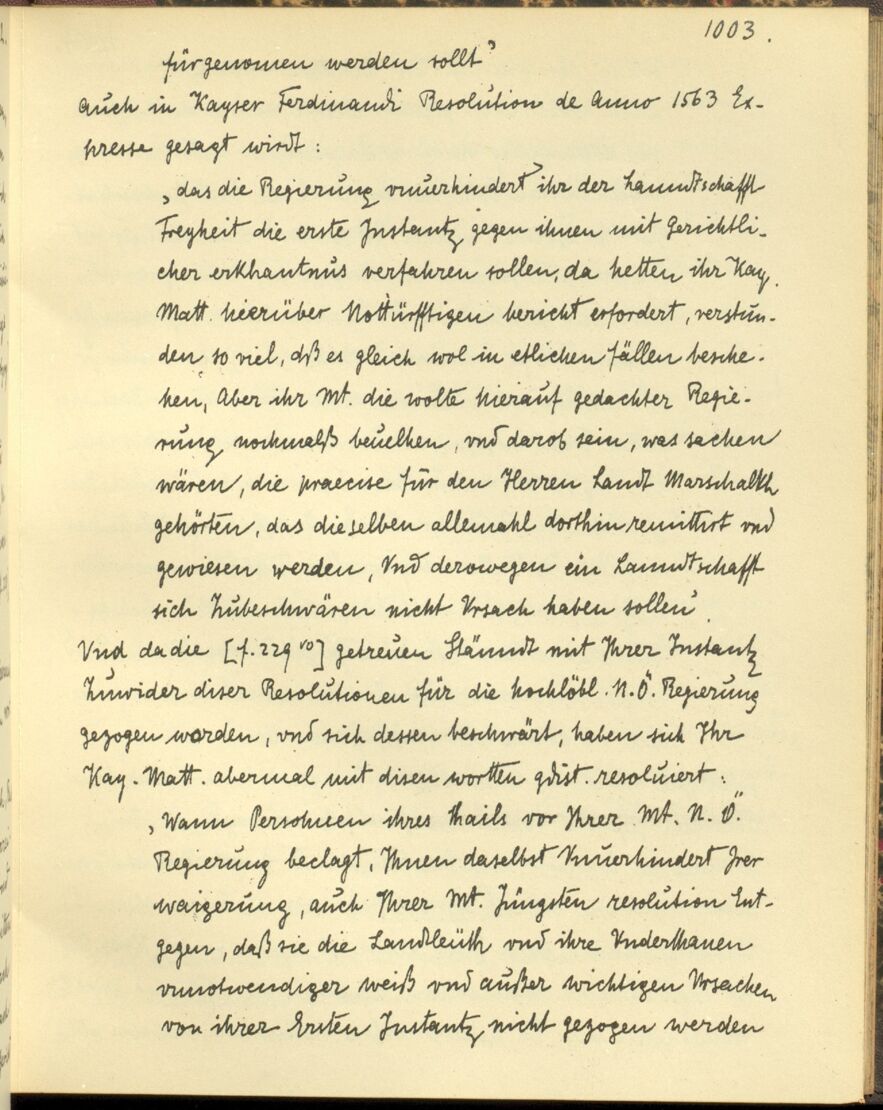 1003.
fürgenomen werden sollt'
auch in Kayser Ferdinandi Resolution de Anno 1563 Ex-
presse gesagt wirdt:
‚das die Regierung vnuerhindert ihr der Lanndtschafft
Freyheit die erste Instantz gegen ihnen mit Gerichtli-
cher erkhantnus verfahren sollen, da hetten ihr Kay.
Matt. hierüber Nottürfftigen bericht erfordert, verstun-
den so viel, dß es gleich wol in etlichen fällen besche-
hen, Aber ihr Mt. die wolte hierauf gedachter Regie-
rung nochmalß beuelhen, vnd darob sein, was sachen
wären, die praecise für den Herren Landt Marschalkh
gehörten, das dieselben allemahl dorthin remittirt vnd
gewiesen werden, Vnd derowegen ein Lanndtschafft
sich Zubeschwären nicht Vrsach haben sollen'
Vnd da die [f. 229 vo] getreuen Stänndt mit Ihrer Instantz
Zuwider diser Resolutionen für die hochlöbl. N.Ö. Regierung
gezogen worden, vnd sich dessen beschwärt, haben sich Ihr
Kay. Matt. abermal mit disen wortten gdist. resoluiert:
‚Wann Persohnen ihres thails vor Ihrer Mt. N.Ö.
Regierung beclagt, Ihnen daselbst Vnuerhindert Irer
waigerung, auch Ihrer Mt. Jüngsten resolution Ent-
gegen, daß sie die Landleüth vnd ihre Vnderthanen
vnnotwendiger weiß vnd außer wichtigen Vrsachen
von ihrer Ersten Instantz nicht gezogen werden